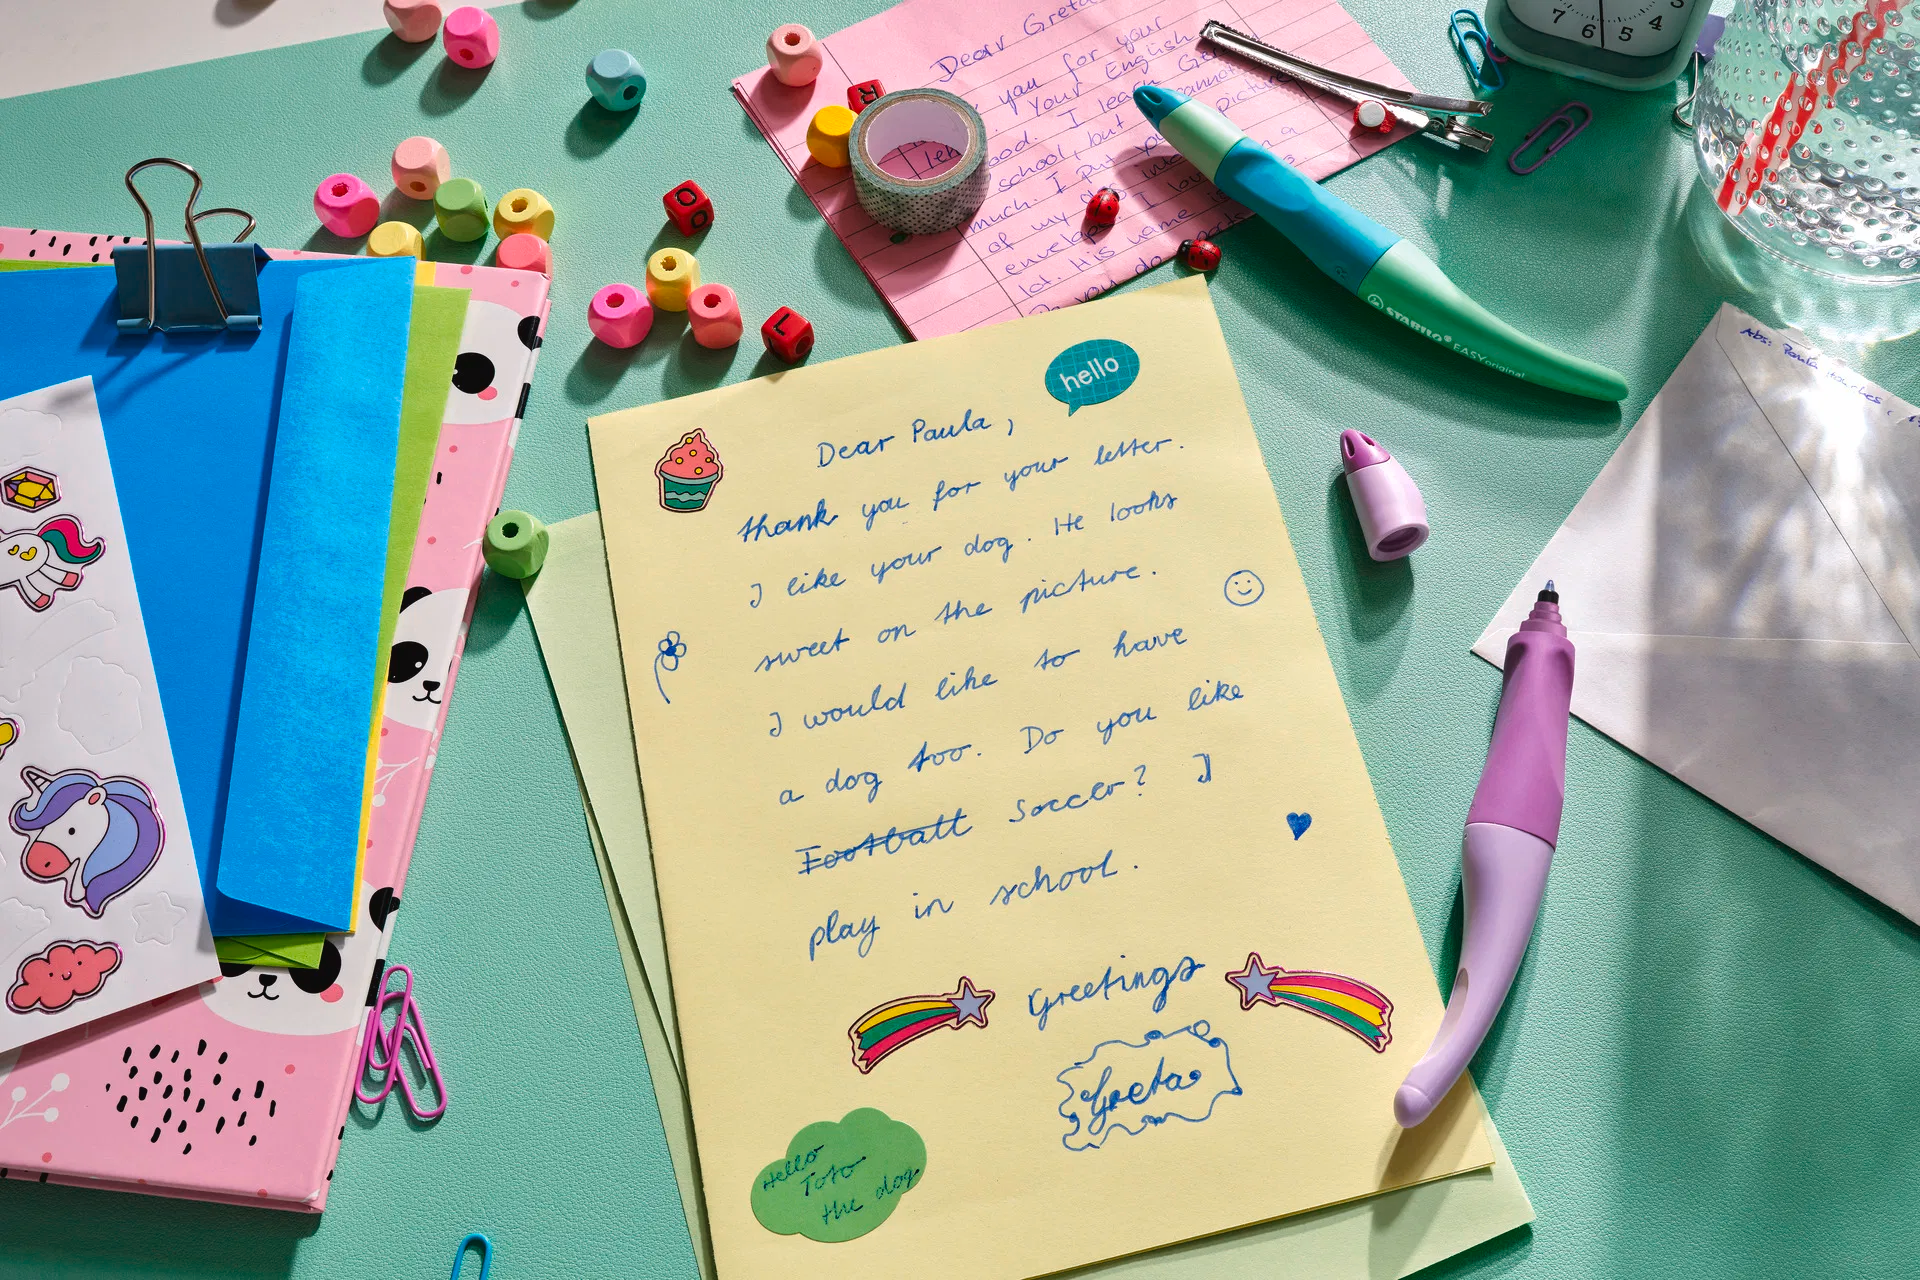 Dear Greta
you for your
Your English
good. I learn
school, but cannot
much. I Put your picture
of my dog in a
envelope. I lov
lot. His name is
you do
hello
Dear Paula,
thank you for your letter.
I like your dog. He looks
sweet on the picture.
I would like to have
a dog too. Do you like
Football Soccer? I
play in school.
Greetings
Greta
Hello
Toto
the dog
STABILO® EASYoriginal
Abs: Paula
R
O
L
7 6 5 4